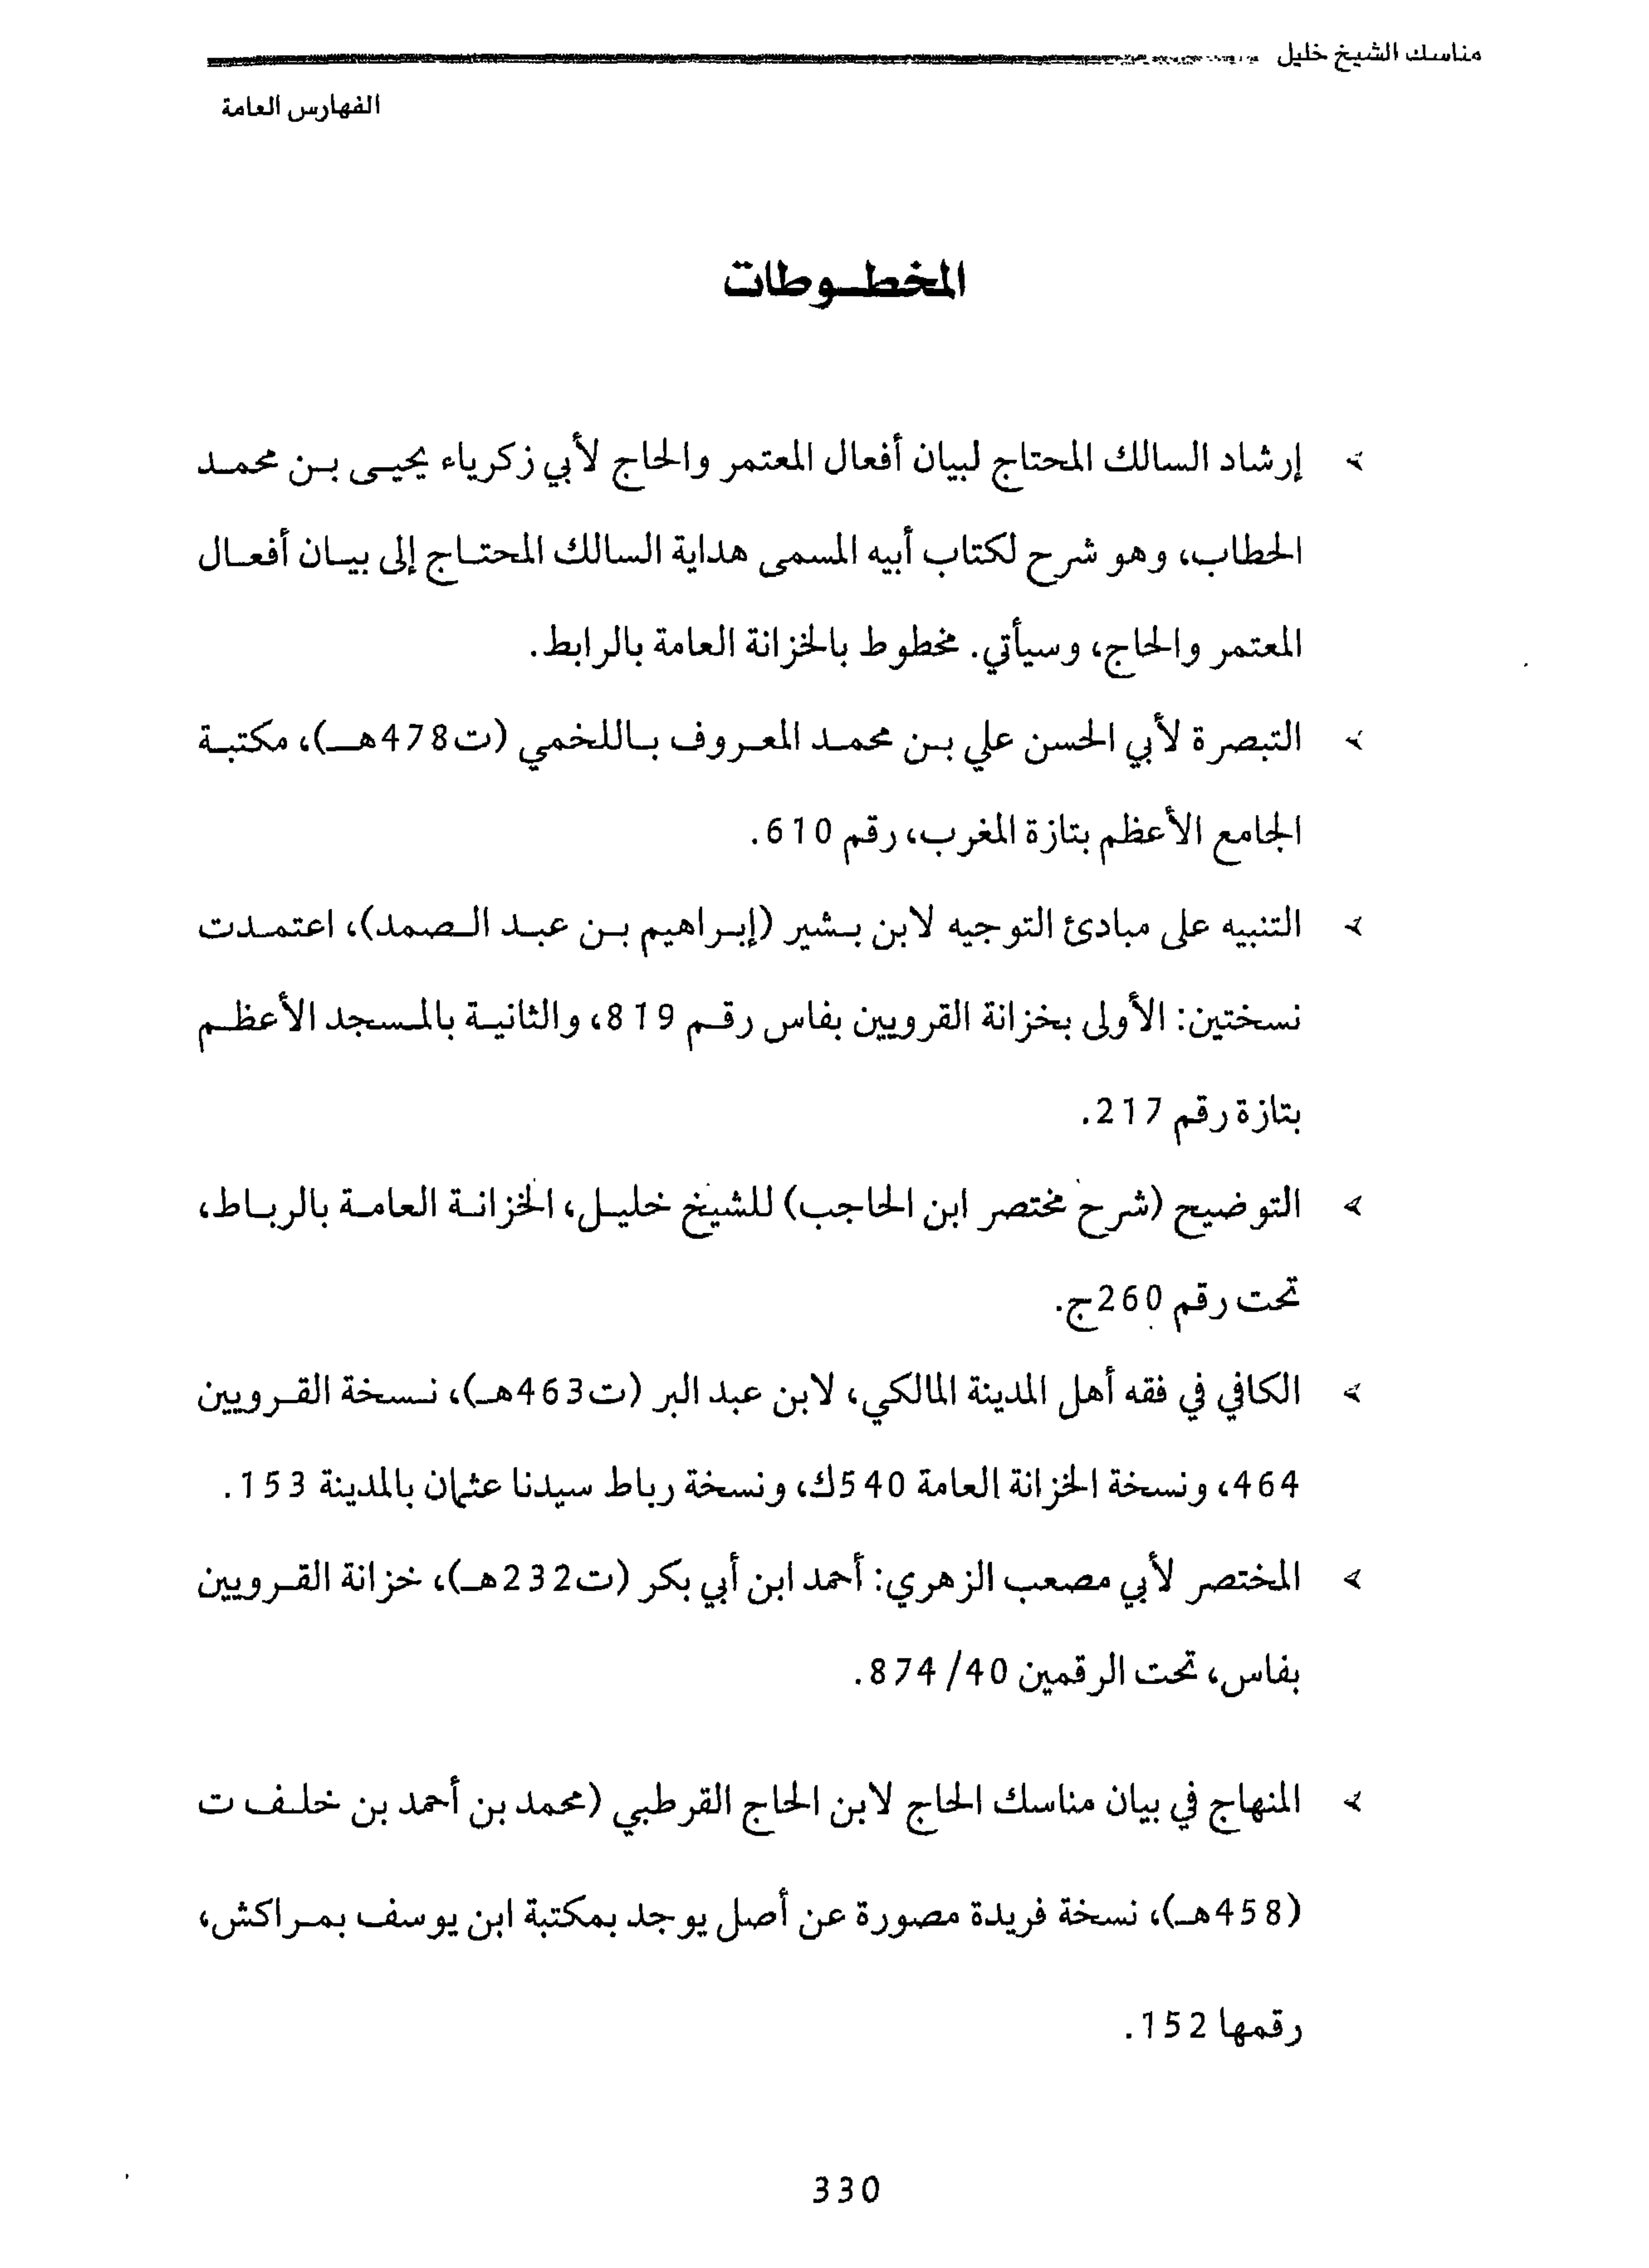 مناسك الشيخ خليل
الفهارس العامة
المخطوطات
إرشاد السالك المحتاج لبيان أفعال المعتمر والحاج لأبي زكرياء يحيى بن محمد
الحطاب، وهو شرح لكتاب أبيه المسمى هداية السالك المحتاج إلى بيان أفعال
المعتمر والحاج، وسيأتي. مخطوط بالخزانة العامة بالرابط.
التبصرة لأبي الحسن علي بن محمد المعروف باللخمي (ت478هـ)، مكتبة
الجامع الأعظم بتازة المغرب، رقم 610.
التنبيه على مبادئ التوجيه لابن بشير (إبراهيم بن عبد الصمد)، اعتمدت
نسختين: الأولى بخزانة القرويين بفاس رقم 819، والثانية بالمسجد الأعظم
بتازة رقم 217.
التوضيح (شرح مختصر ابن الحاجب) للشيخ خليل، الخزانة العامة بالرباط،
تحت رقم 260ج.
الكافي في فقه أهل المدينة المالكي، لابن عبد البر (ت463هـ)، نسخة القرويين
464، ونسخة الخزانة العامة 540ك، ونسخة رباط سيدنا عثمان بالمدينة 153.
المختصر لأبي مصعب الزهري: أحمد ابن أبي بكر (ت232هـ)، خزانة القرويين
بفاس، تحت الرقمين 40/ 874.
المنهاج في بيان مناسك الحاج لابن الحاج القرطبي (محمد بن أحمد بن خلف ت
(458هـ)، نسخة فريدة مصورة عن أصل يوجد بمكتبة ابن يوسف بمراكش،
رقمها 152.
330